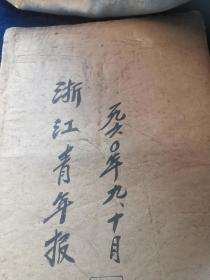 浙江青年报
一九六〇年九、十月